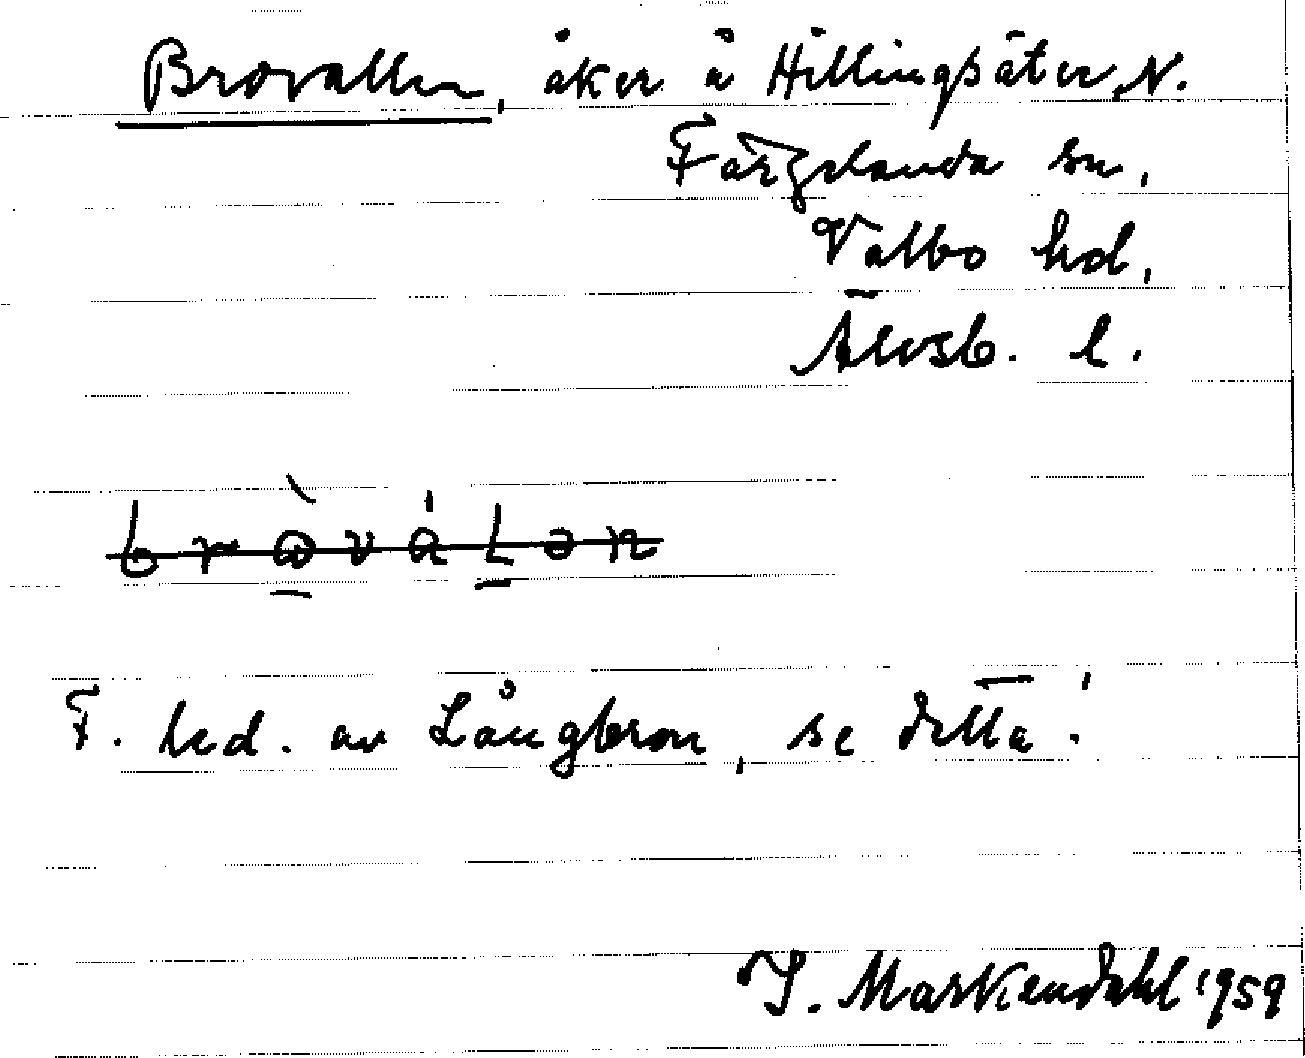 Brovallen, åker å Hillingsäter, N.
Färgelanda sn,
Valbo hd,
Älvsb. l.
F. led. av Långbron, se detta!
I. Markendahl 1959